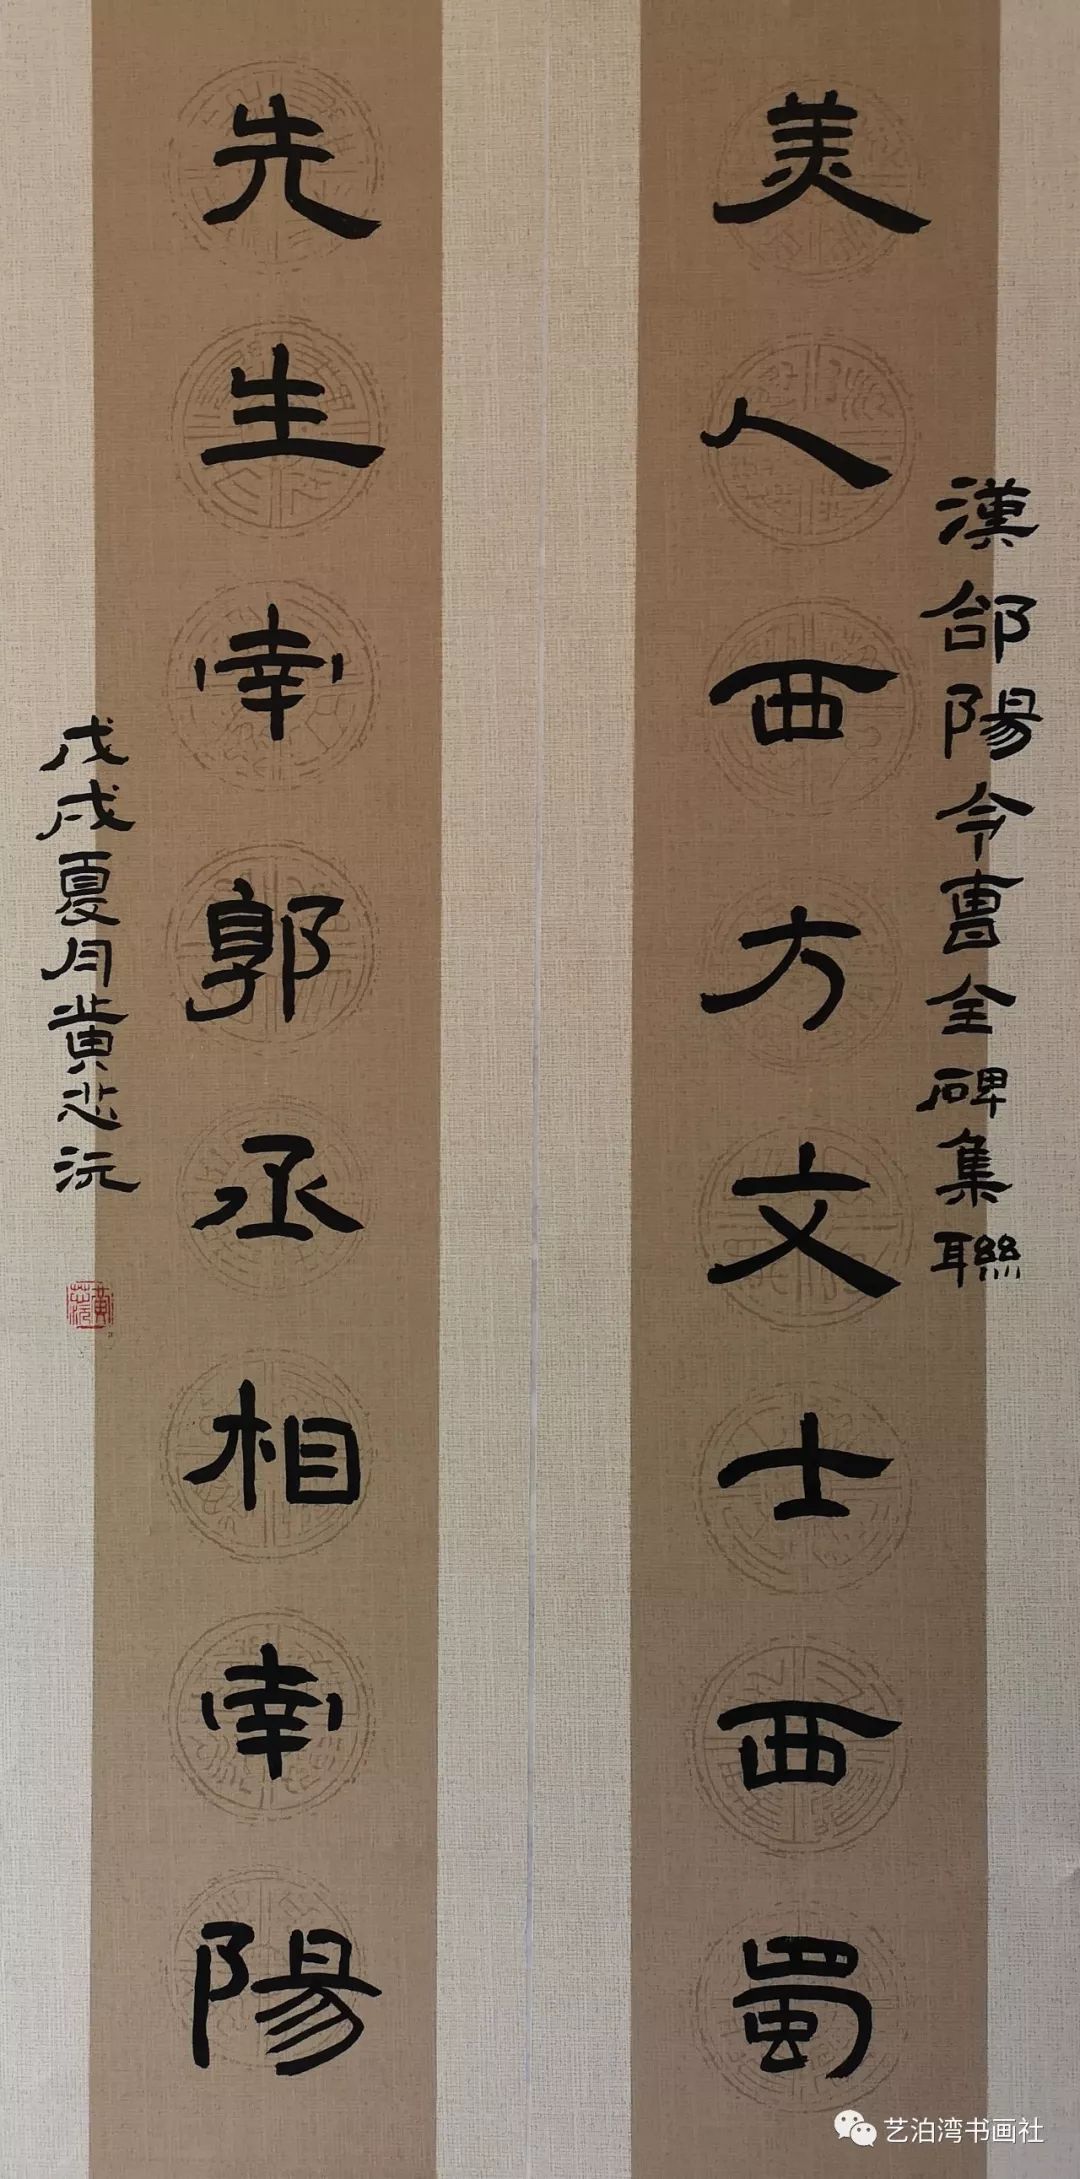 漢郃陽令曹全碑集聯
美人西方文士西蜀
先生南郭丞相南陽
戊戌夏月黄芯沅
黄芯沅
艺泊湾书画社